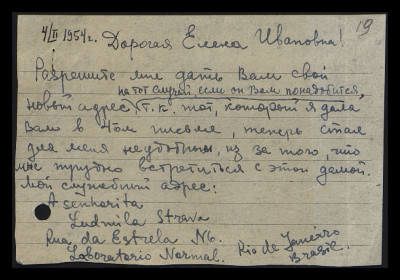 19
4/II 1954г. Дорогая Елена Ивановна!
Разрешите мне дать Вам свой
на тот случай, если он Вам понадобится,
новый адрес, т.к. тот, который я дала
Вам в 4ом письме, теперь стал
для меня неудобным, из за того, что
мне трудно встретиться с этой дамой.
Мой служебный адрес:
A senhorita
Ludmila Strava
Rua da Estrela N6.
Laboratorio Normal. Rio de Janeiro
Brasil.